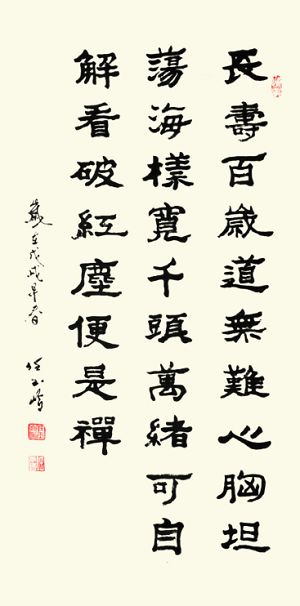 長壽百歲道無難心胸坦
蕩海樣寬千頭萬緒可自
解看破紅塵便是禪
歲在戊戌早春
任